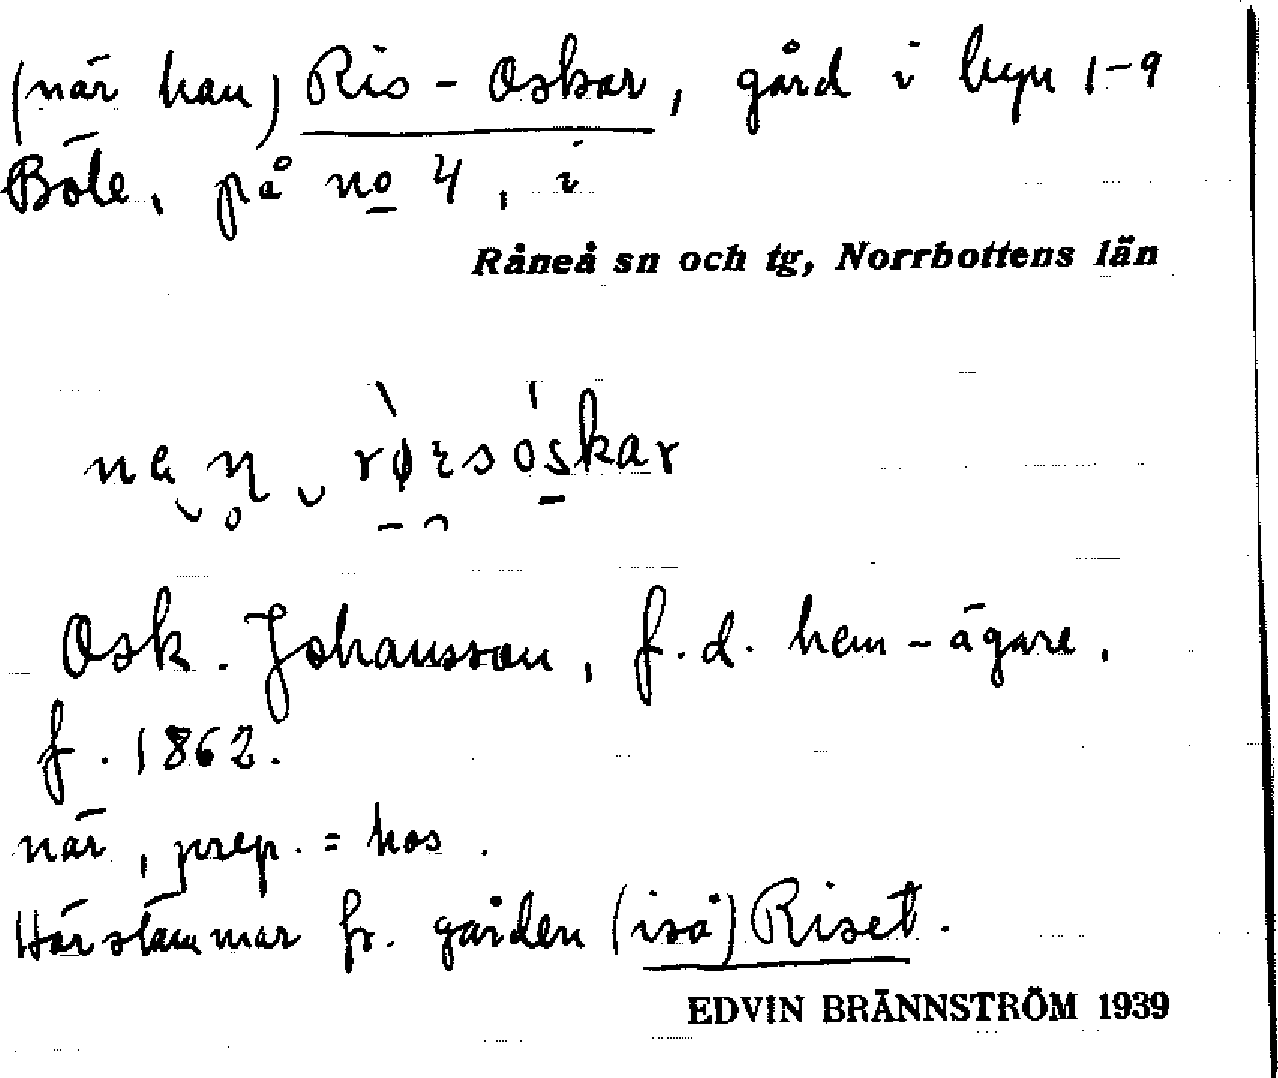 (när han) Ris-Oskar, gård i byn 1-9
Böle, på no 4, i
Råneå sn och tg, Norrbottens län
Osk. Johansson, f.d. hem-ägare,
f. 1862.
när, prep. = hos.
Härstammar fr. gården (iså) Riset.
EDVIN BRÄNNSTRÖM 1939